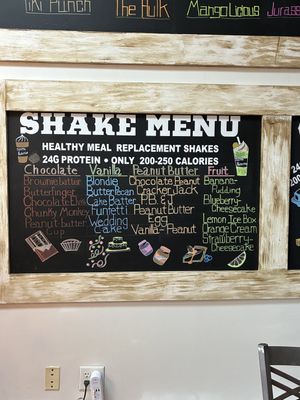 Tiki Punch The Hulk Mango Licious Jurass
SHAKE MENU
HEALTHY MEAL REPLACEMENT SHAKES
24G PROTEIN • ONLY 200-250 CALORIES
Chocolate
Brownie Batter
Butterfinger
Chocolate Elvis
Chunky Monkey
Peanut Butter
Cup
Vanilla
Blondie
Butter Pecan
Cake Batter
Funfetti
Wedding
Cake
Peanut Butter
Chocolate Peanut
Cracker Jack
P.B. & J
Peanut Butter
Egg
Vanilla-Peanut
Fruit
Banana-
Pudding
Blueberry-
Cheesecake
Lemon Ice Box
Orange Cream
Strawberry-
Cheesecake